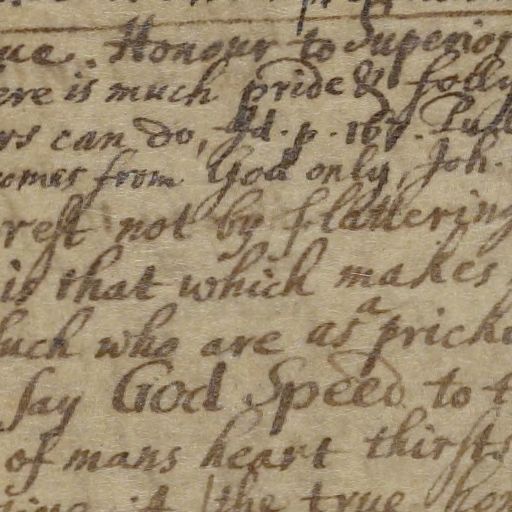 ue. Honour to Superior
ere is much pride & folly
rs can do, Id. p. 167. Pub
comes from God only, Joh.
rest not by flattering
is that which makes
such who are as a pricke
say God Speed to t
of mans heart thirsts
it the true hon